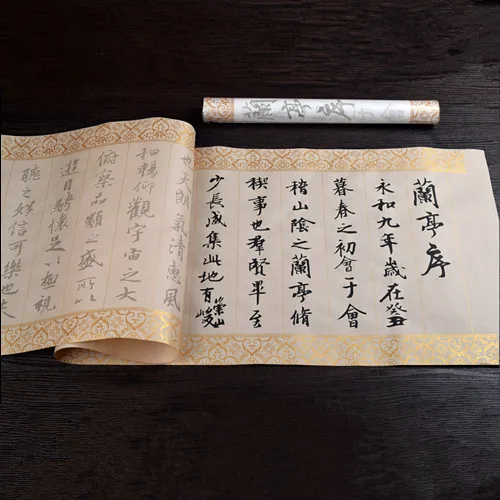 蘭亭序
永和九年歲在癸丑
暮春之初會于會
稽山陰之蘭亭脩
禊事也羣賢畢至
少長咸集此地有崇山峻
也天朗氣清惠風
和暢仰觀宇宙之大
俯察品類之盛所以
遊目騁懷足以極視
聽之娛信可樂也夫
蘭亭序于會